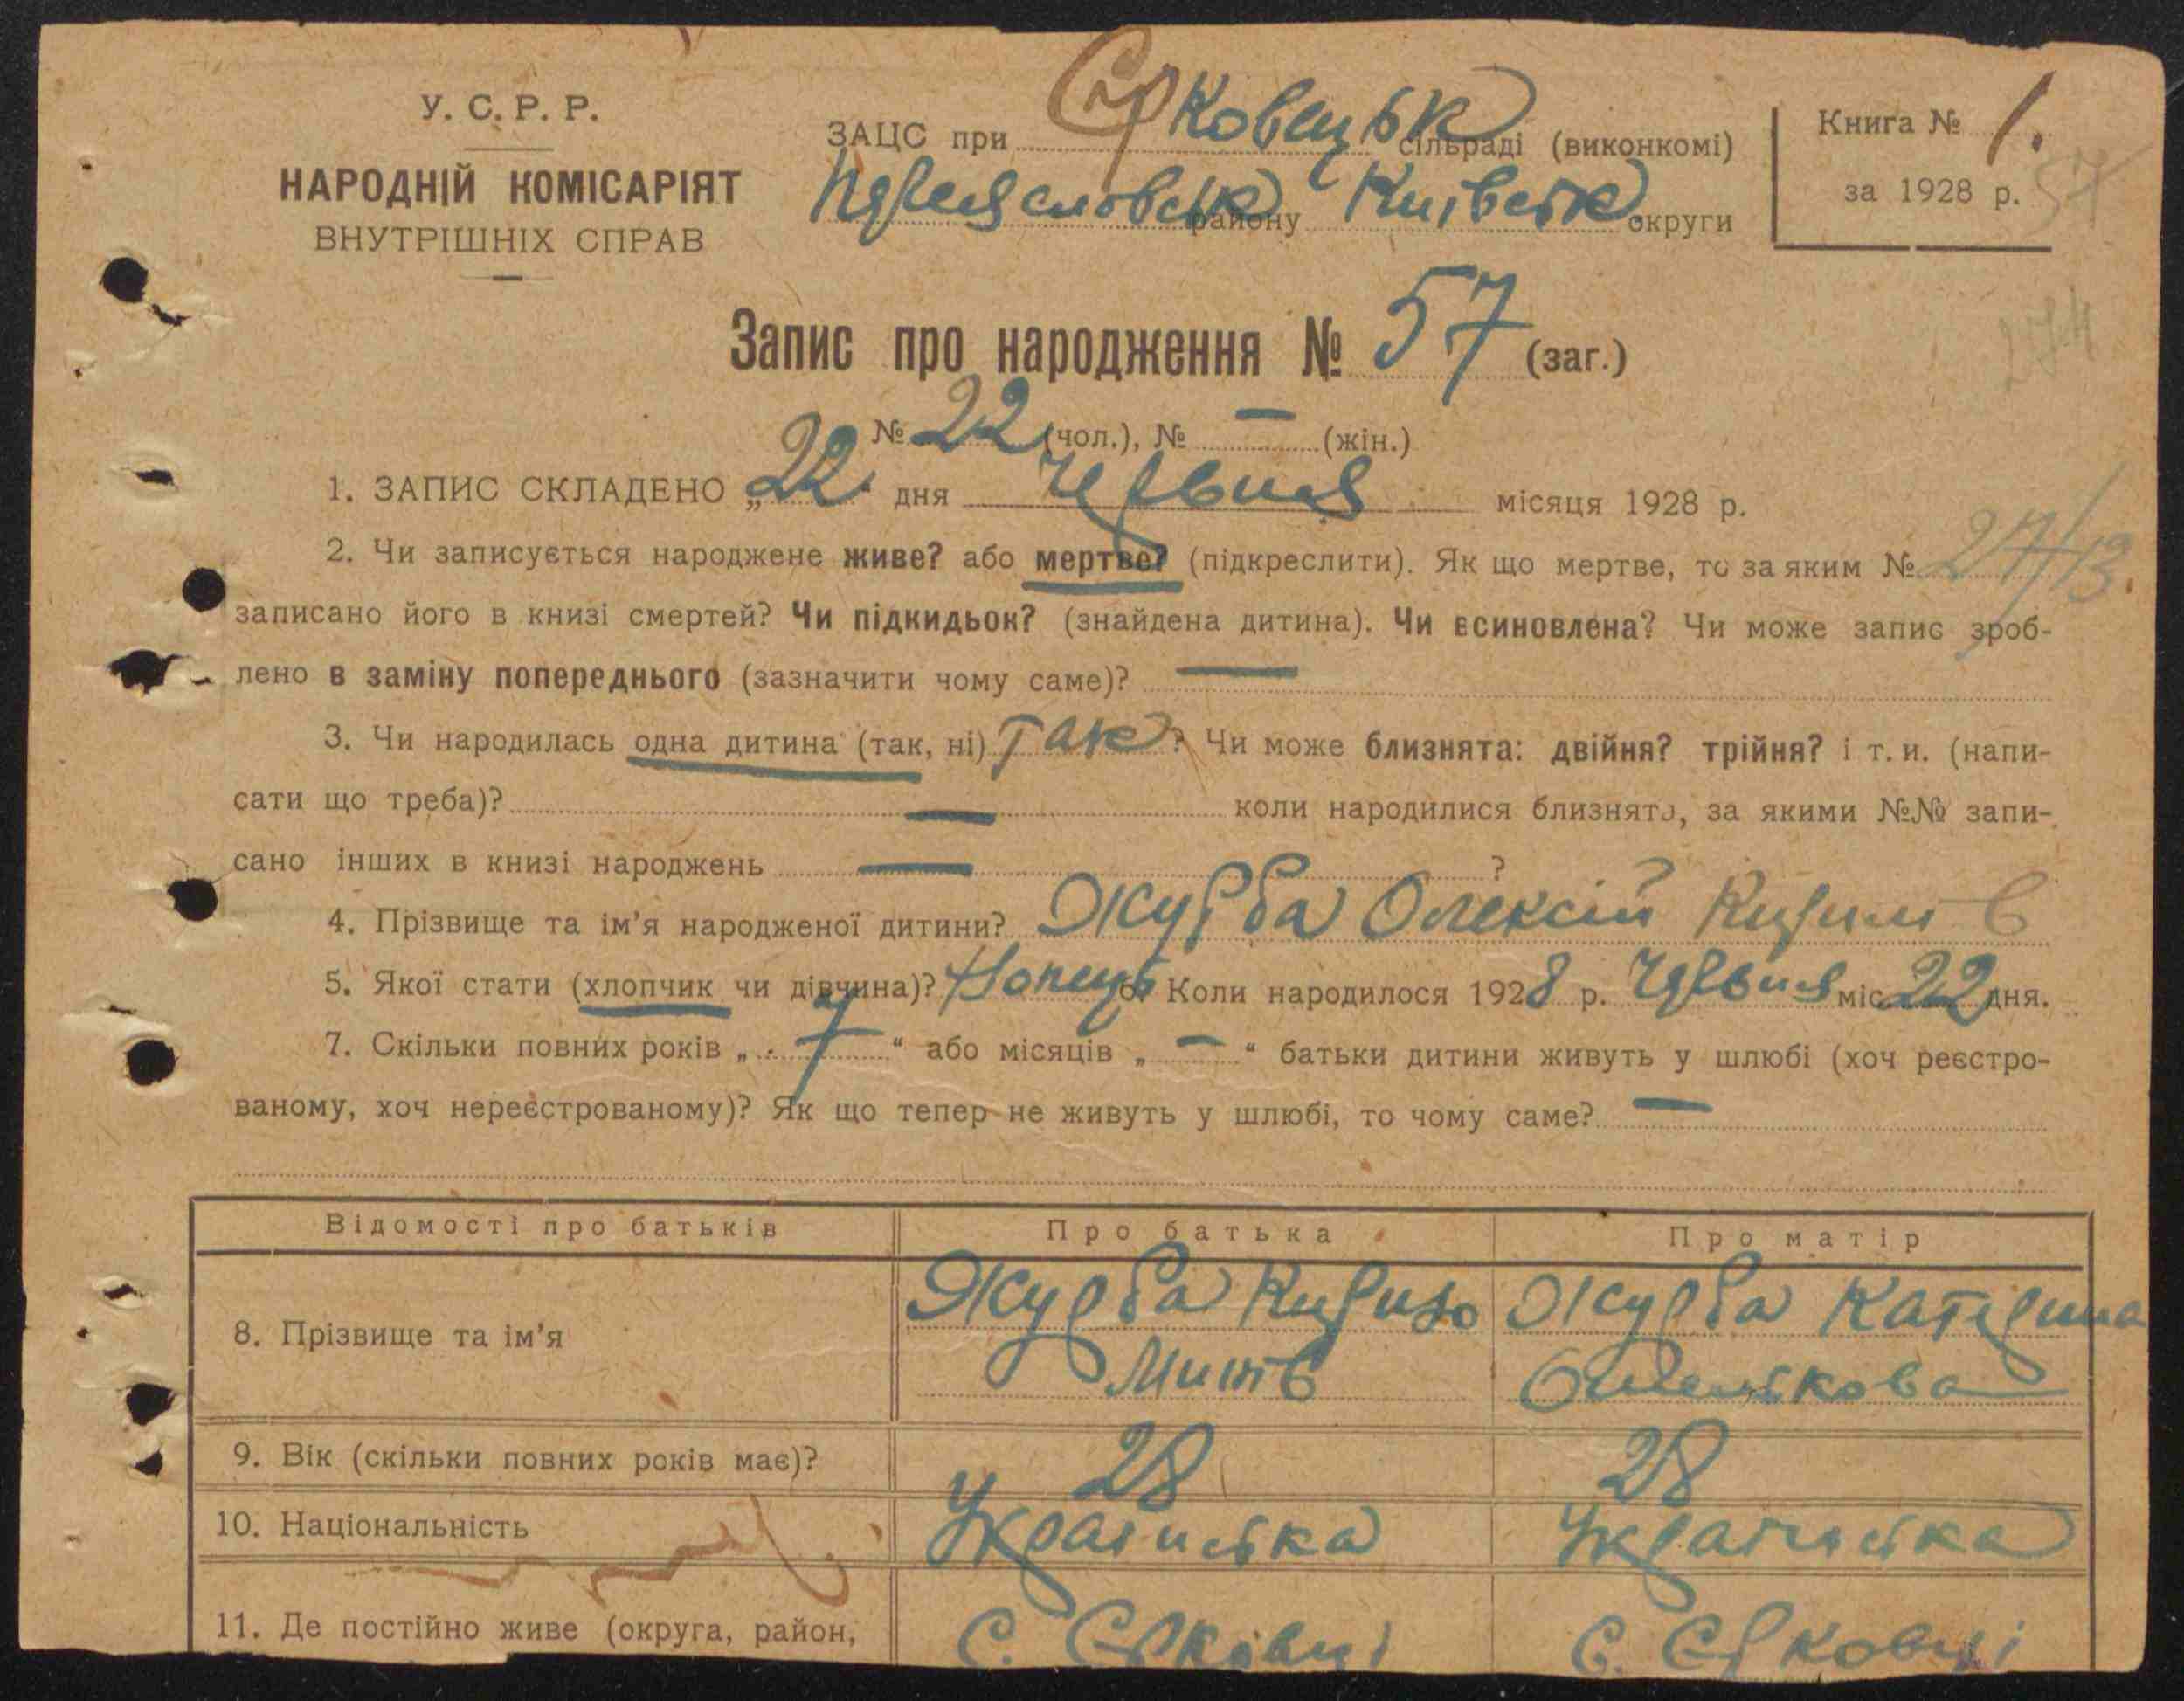 У. С. Р. Р.
НАРОДНІЙ КОМІСАРІЯТ
ВНУТРІШНІХ СПРАВ
ЗАЦС при Єрковецьк сільраді (виконкомі)
Переяславськ району Київськ округи
Книга № 1.
за 1928 р.
57
Запис про народження № 57 (заг.)
№ 22 (чол.), № — (жін.)
1. ЗАПИС СКЛАДЕНО „22“ дня Червня місяця 1928 р.
2. Чи записується народжене живе? або мертве? (підкреслити). Як що мертве, то за яким №
записано його в книзі смертей? Чи підкидьок? (знайдена дитина). Чи всиновлена? Чи може запис зроб-
лено в заміну попереднього (зазначити чому саме)? —
3. Чи народилась одна дитина (так, ні) Так? Чи може близнята: двійня? трійня? і т. и. (напи-
сати що треба)? — коли народилися близнята, за якими №№ запи-
сано інших в книзі народжень — ?
4. Прізвище та ім’я народженої дитини? Журба Олексій Кирилів
5. Якої стати (хлопчик чи дівчина)? Хлопець 6. Коли народилося 1928 р. Червня міс. 22 дня.
7. Скільки повних років „7“ або місяців „—“ батьки дитини живуть у шлюбі (хоч реєстро-
ваному, хоч нереєстрованому)? Як що тепер не живуть у шлюбі, то чому саме? —
Відомості про батьків Про батька Про матір
8. Прізвище та ім’я Журба Кирило Журба Катерина
9. Вік (скільки повних років має)? 28 28
10. Національність Українська Українська
11. Де постійно живе (округа, район, С. Єрковці С. Єрковці